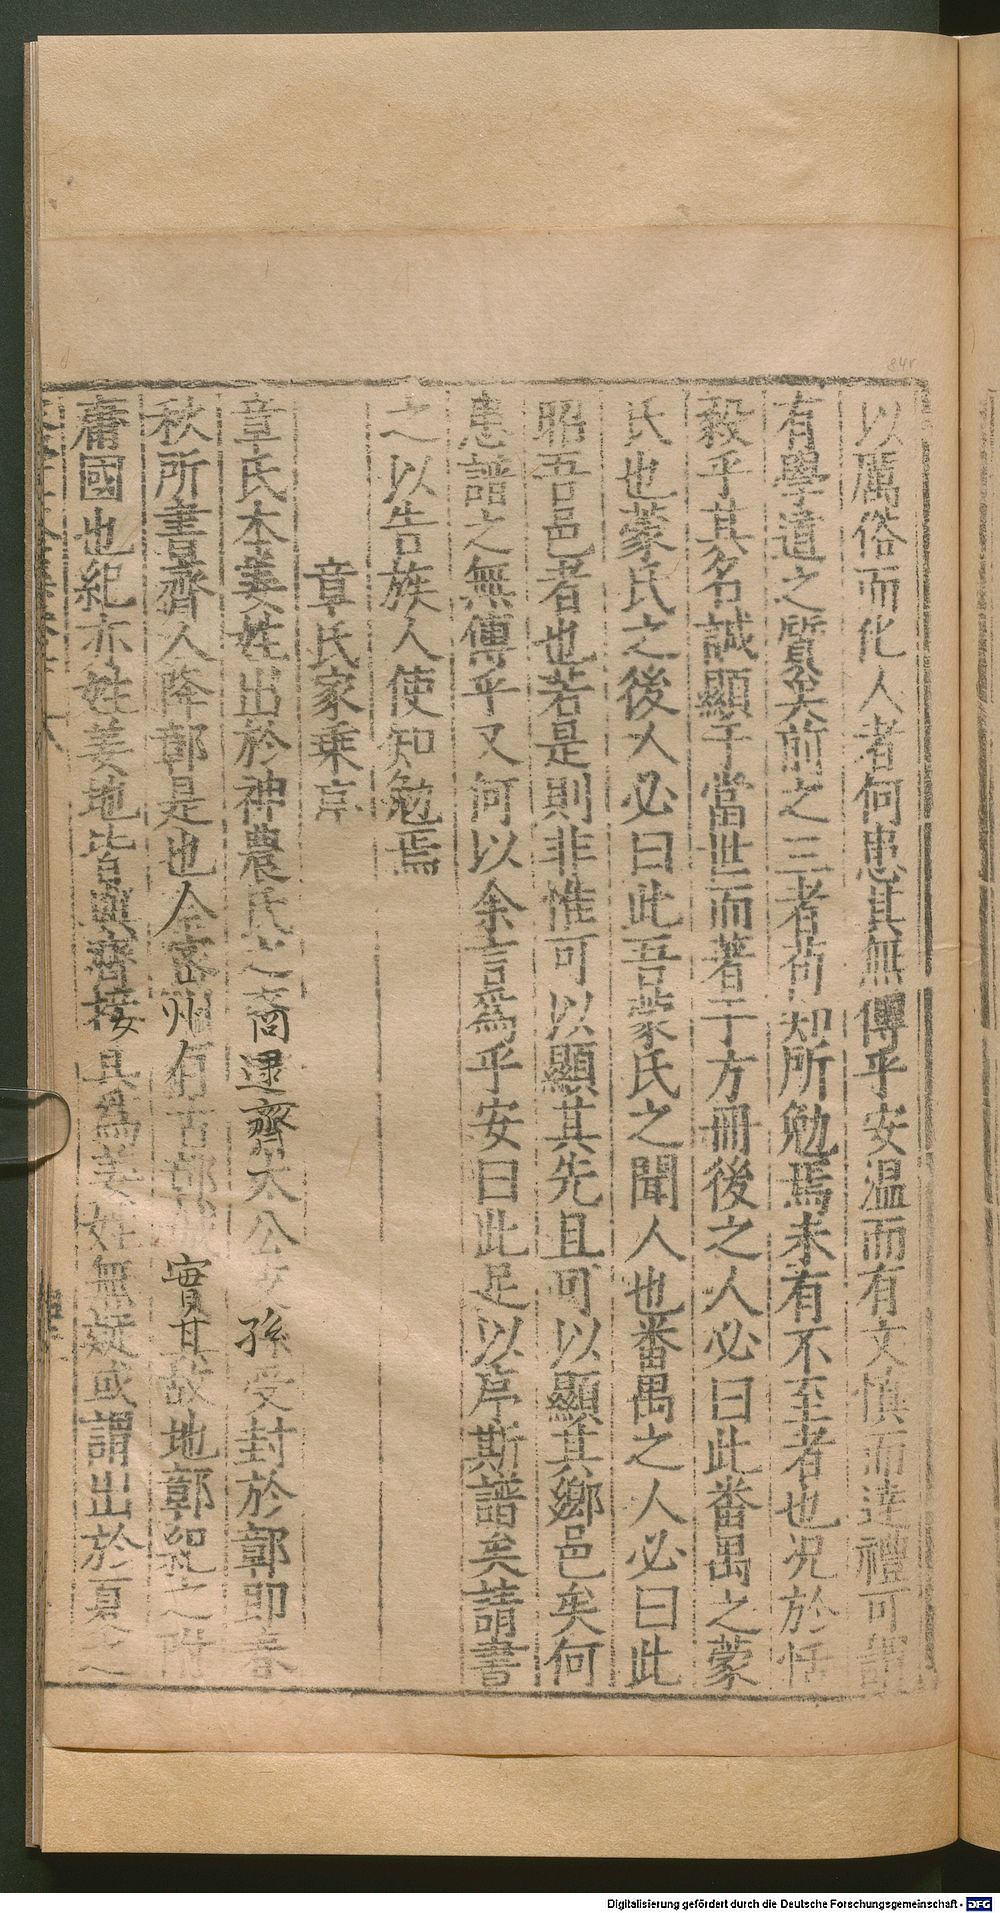 以厲俗而化人者何患其無傳乎安温而有文慎而達禮可謂
有學道之質矣前之三者苟知所勉焉未有不至者也况於恬
毅乎其名誠顯于當世而著于方冊後之人必曰此番禺之蒙
氏也蒙氏之後人必曰此吾蒙氏之聞人也番禺之人必曰此
昭吾邑者也若是則非惟可以顯其先且可以顯其鄉邑矣何
患譜之無傳乎又何以余言爲乎安曰此足以序斯譜矣請書
之以告族人使知勉焉
章氏家乗序
章氏本姜姓出於神農氏之裔逮齊太公支孫受封於鄣即春
秋所書齊人降鄣是也今密州有古鄣城實其故地鄣紀之附
庸國也紀亦姓姜地皆與齊接其爲姜姓無疑或謂出於夏之
84r
Digitalisierung gefördert durch die Deutsche Forschungsgemeinschaft - DFG